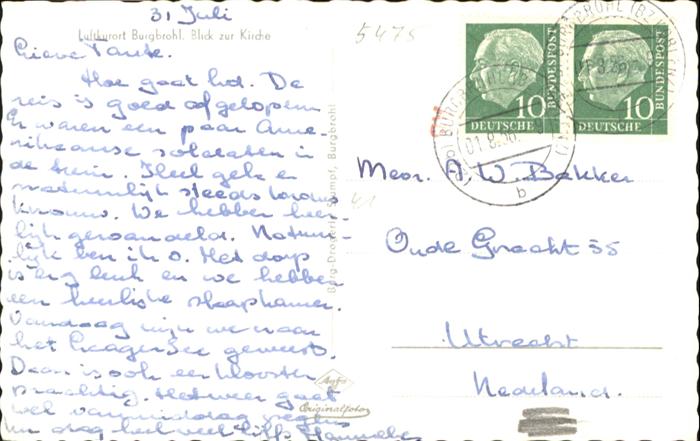 31 Juli
Luftkurort Burgbrohl. Blick zur Kirche
5475
Lieve Tante.
Hoe gaat het. De
reis is goed afgelopen
Er waren een paar Ame-
rikaanse soldaten in
de trein. Heel gek en
natuurlijk steeds
We hebben heer-
lijk gewandeld. Natuur-
lijk ben ik o. Het dorp
is erg leuk en we hebben
een heerlijke slaapkamer.
Vandaag zijn we naar
het Laagersee geweest.
Daar is ook een klooster
prachtig. Het weer gaat
wel vanmiddag regen
dag heel veel liefs Hanneke
Burg-Drogerie Stumpf, Burgbrohl
Agfa
Originalfoto
10
DEUTSCHE
BUNDESPOST
10
DEUTSCHE
BUNDESPOST
BURGBROHL
b
Mevr. A W Bakker
Oude Gracht 55
Utrecht
Nederland.